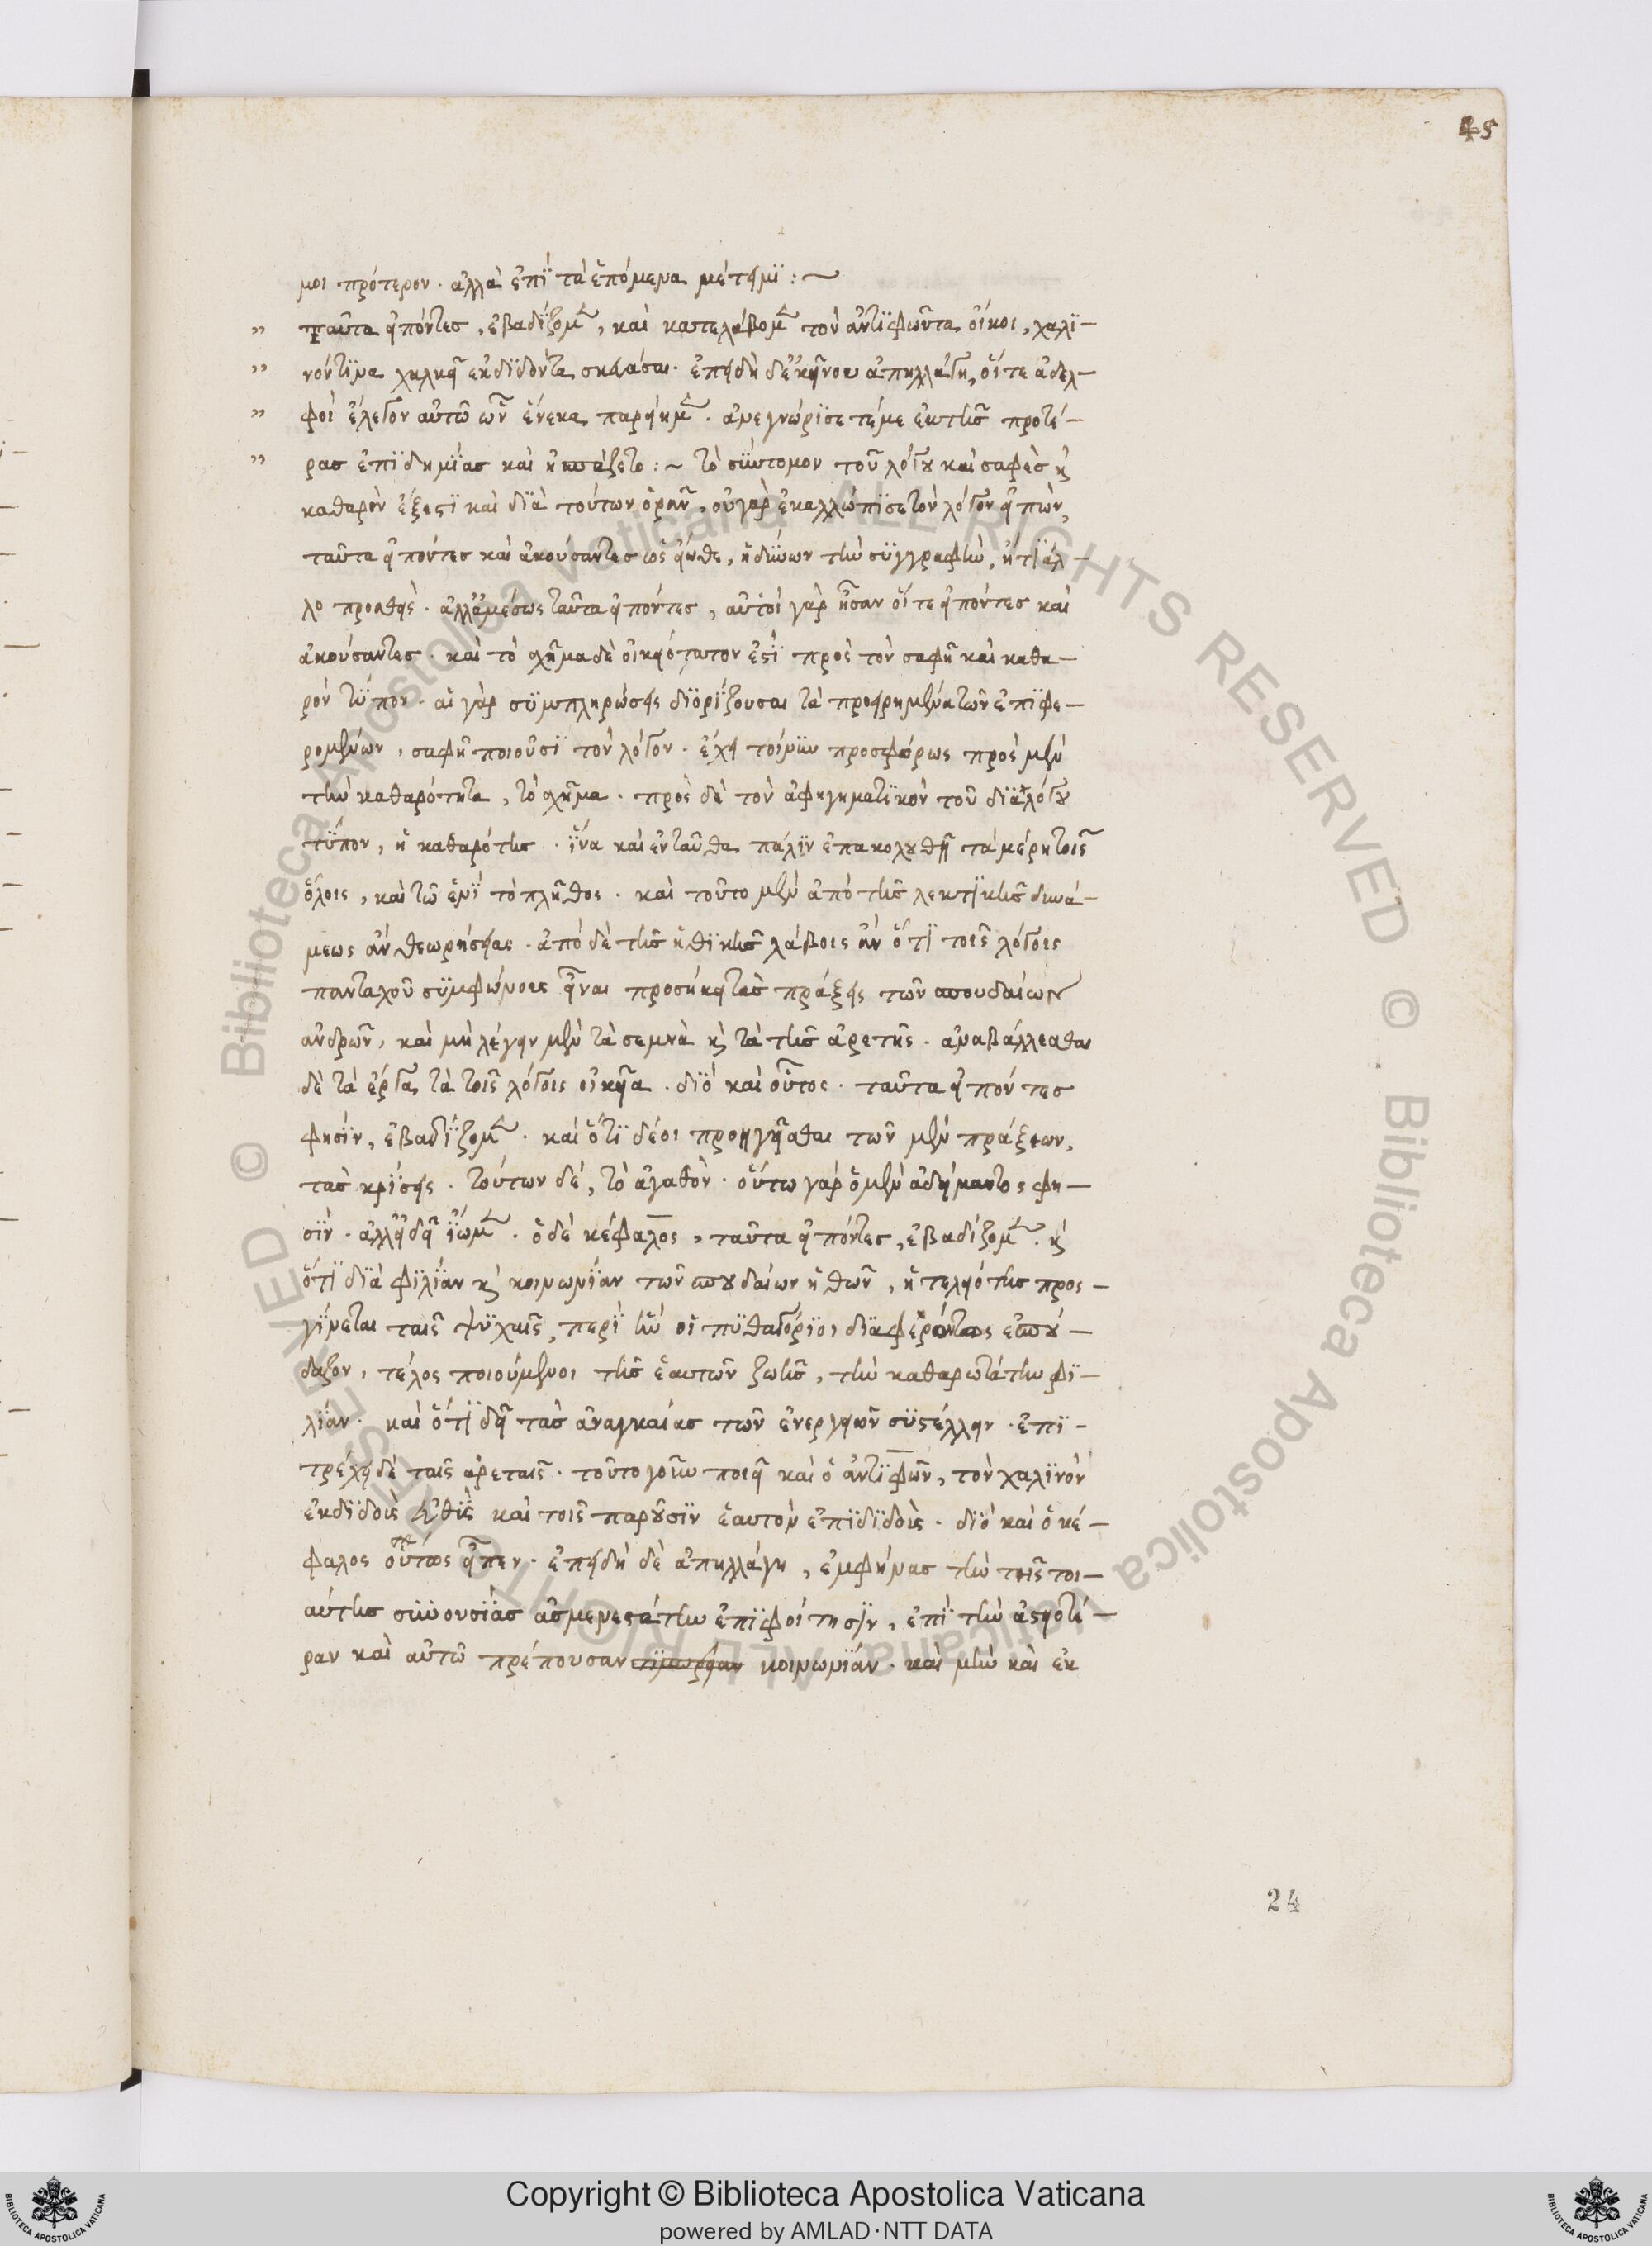 45
μοι πρότερον · ἀλλὰ ἐπῒ τὰ ἑπόμενα μέτειμϊ : ~
„ Ταῦτα εἰπόντες, ἐβαδΐζομεν, καὶ κατελάβομεν τὸν ἀντϊφῶντα οἴκοι, χαλϊ-
„ νόν τϊνα χαλκεῖ ἐκδϊδόντα σκευάσαι · ἐπειδὴ δὲ ἐκείνου ἀπηλλάγη, οἵ τε ἀδελ-
„ φοὶ ἔλεγον αὐτῶ ὧν ἕνεκα παρεῖημεν · ἀνεγνώρϊσέ τέ με ἐκ τῆς προτέ-
„ ρας ἐπϊδημΐας καὶ ἠσπάζετο : ~ τὸ σύντομον τοῦ λόγου καὶ σαφὲς κ̀
καθαρὸν ἔξεστϊ καὶ δϊὰ τούτων ὁρᾶν, οὐ γὰρ ἐκαλλώπϊσε τὸν λόγον εἰπὼν,
ταῦτα εἰπόντες καὶ ἀκούσαντες ὡς εἴωθε, ἡδύνων τὴν συγγραφὴν, ἤ τϊ ἄλ-
λο προσθεὶς · ἀλλ' ἀμέσως ταῦτα εἰπόντες, αὐτοὶ γὰρ ἦσαν οἵ τε εἰπόντες καὶ
ἀκούσαντες · καὶ τὸ σχῆμα δὲ οἰκειότατον ἐστῒ πρὸς τὸν σαφῆ καὶ καθα-
ρὸν τύπον · αἱ γὰρ συμπληρώσεις δϊορΐζουσαι τὰ προειρημένα τῶν ἐπϊφε-
ρομένων, σαφῆ ποιοῦσϊ τὸν λόγον · ἔχει τοίνυν προσφόρως πρὸς μὲν
τὴν καθαρότητα, τὸ σχῆμα · πρὸς δὲ τὸν ἀφηγηματϊκὸν τοῦ δϊαλόγου
τύπον, ἡ καθαρότης · ἵνα καὶ ἐνταῦθα πάλϊν ἐπακολουθῇ τὰ μέρη τοῖς
ὅλοις, καὶ τῶ ἑνῒ τὸ πλῆθος · καὶ τοῦτο μὲν ἀπὸ τῆς λεκτϊκῆς δυνά-
μεως ἂν θεωρήσειας · ἀπὸ δὲ τῆς ἠθϊκῆς λάβοις ἂν ὅτϊ τοῖς λόγοις
πανταχοῦ συμφώνους εἶναι προσήκει τὰς πράξεις τῶν σπουδαίων
ἀνδρῶν, καὶ μὴ λέγειν μὲν τὰ σεμνὰ κ̀ τὰ τῆς ἀρετῆς · ἀναβάλλεσθαι
δὲ τὰ ἔργα τὰ τοῖς λόγοις οἰκεῖα · δϊὸ καὶ οὗτος · ταῦτα εἰπόντες
φησΐν, ἐβαδΐζομεν · καὶ ὅτϊ δέοι προηγεῖσθαι τῶν μὲν πράξεων,
τὰς κρΐσεις · τούτων δὲ, τὸ ἀγαθὸν · οὕτω γὰρ ὁ μὲν ἀδείμαντος φη-
σῒν · ἀλλ' εἰ δεῖ ἴωμεν · ὁ δὲ κέφαλος, ταῦτα εἰπόντες, ἐβαδίζομεν · κ̀
ὅτϊ δϊὰ φϊλΐαν κ̀ κοινωνΐαν τῶν σπουδαίων ἠθῶν, ἡ τελειότης προς-
γΐνεται ταῖς ψυχαῖς, περῒ ἣν οἱ πυθαγόρϊοι δϊαφερόντως ἐσπού-
δαζον, τέλος ποιούμενοι τῆς ἑαυτῶν ζωῆς, τὴν καθαρωτάτην φϊ-
λΐαν · καὶ ὅτϊ δεῖ τὰς ἀναγκαίας τῶν ἐνεργειῶν συστέλλειν · ἐπϊ-
τρέχειν δὲ ταῖς ἀρεταῖς · τοῦτο γοῦν ποιεῖ καὶ ὁ ἀντϊφῶν, τὸν χαλϊνὸν
ἐκδϊδοὺς εὐθὺς καὶ τοῖς παροῦσϊν ἑαυτὸν ἐπϊδϊδοὺς · δϊὸ καὶ ὁ κέ-
φαλος οὕτως εἶπεν · ἐπειδὴ δὲ ἀπηλλάγη, ἐμφήνας τὴν τῆς τοι-
αύτης συνουσΐας ἀσμενεστάτην ἐπϊφοίτησϊν, ἐπῒ τὴν ἀστειοτέ-
ραν καὶ αὐτῶ πρέπουσαν κοινωνΐαν · καὶ μὴν καὶ ἐκ
24
© Biblioteca Apostolica Vaticana ALL RIGHTS RESERVED
© Biblioteca Apostolica Vaticana ALL RIGHTS RESERVED
Copyright © Biblioteca Apostolica Vaticana
powered by AMLAD·NTT DATA
BIBLIOTECA APOSTOLICA VATICANA
BIBLIOTECA APOSTOLICA VATICANA